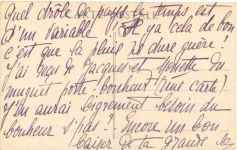 Quel drôle de pays le temps est
d'un variable ! Il y a cela de bon
c'est que la pluie ne dure guère !
J'ai reçu de Jacques et du
muguet porte-bonheur (une carte)
J'en aurai bigrement besoin du
bonheur s'pas ? Encore un bon
baiser de ta grande